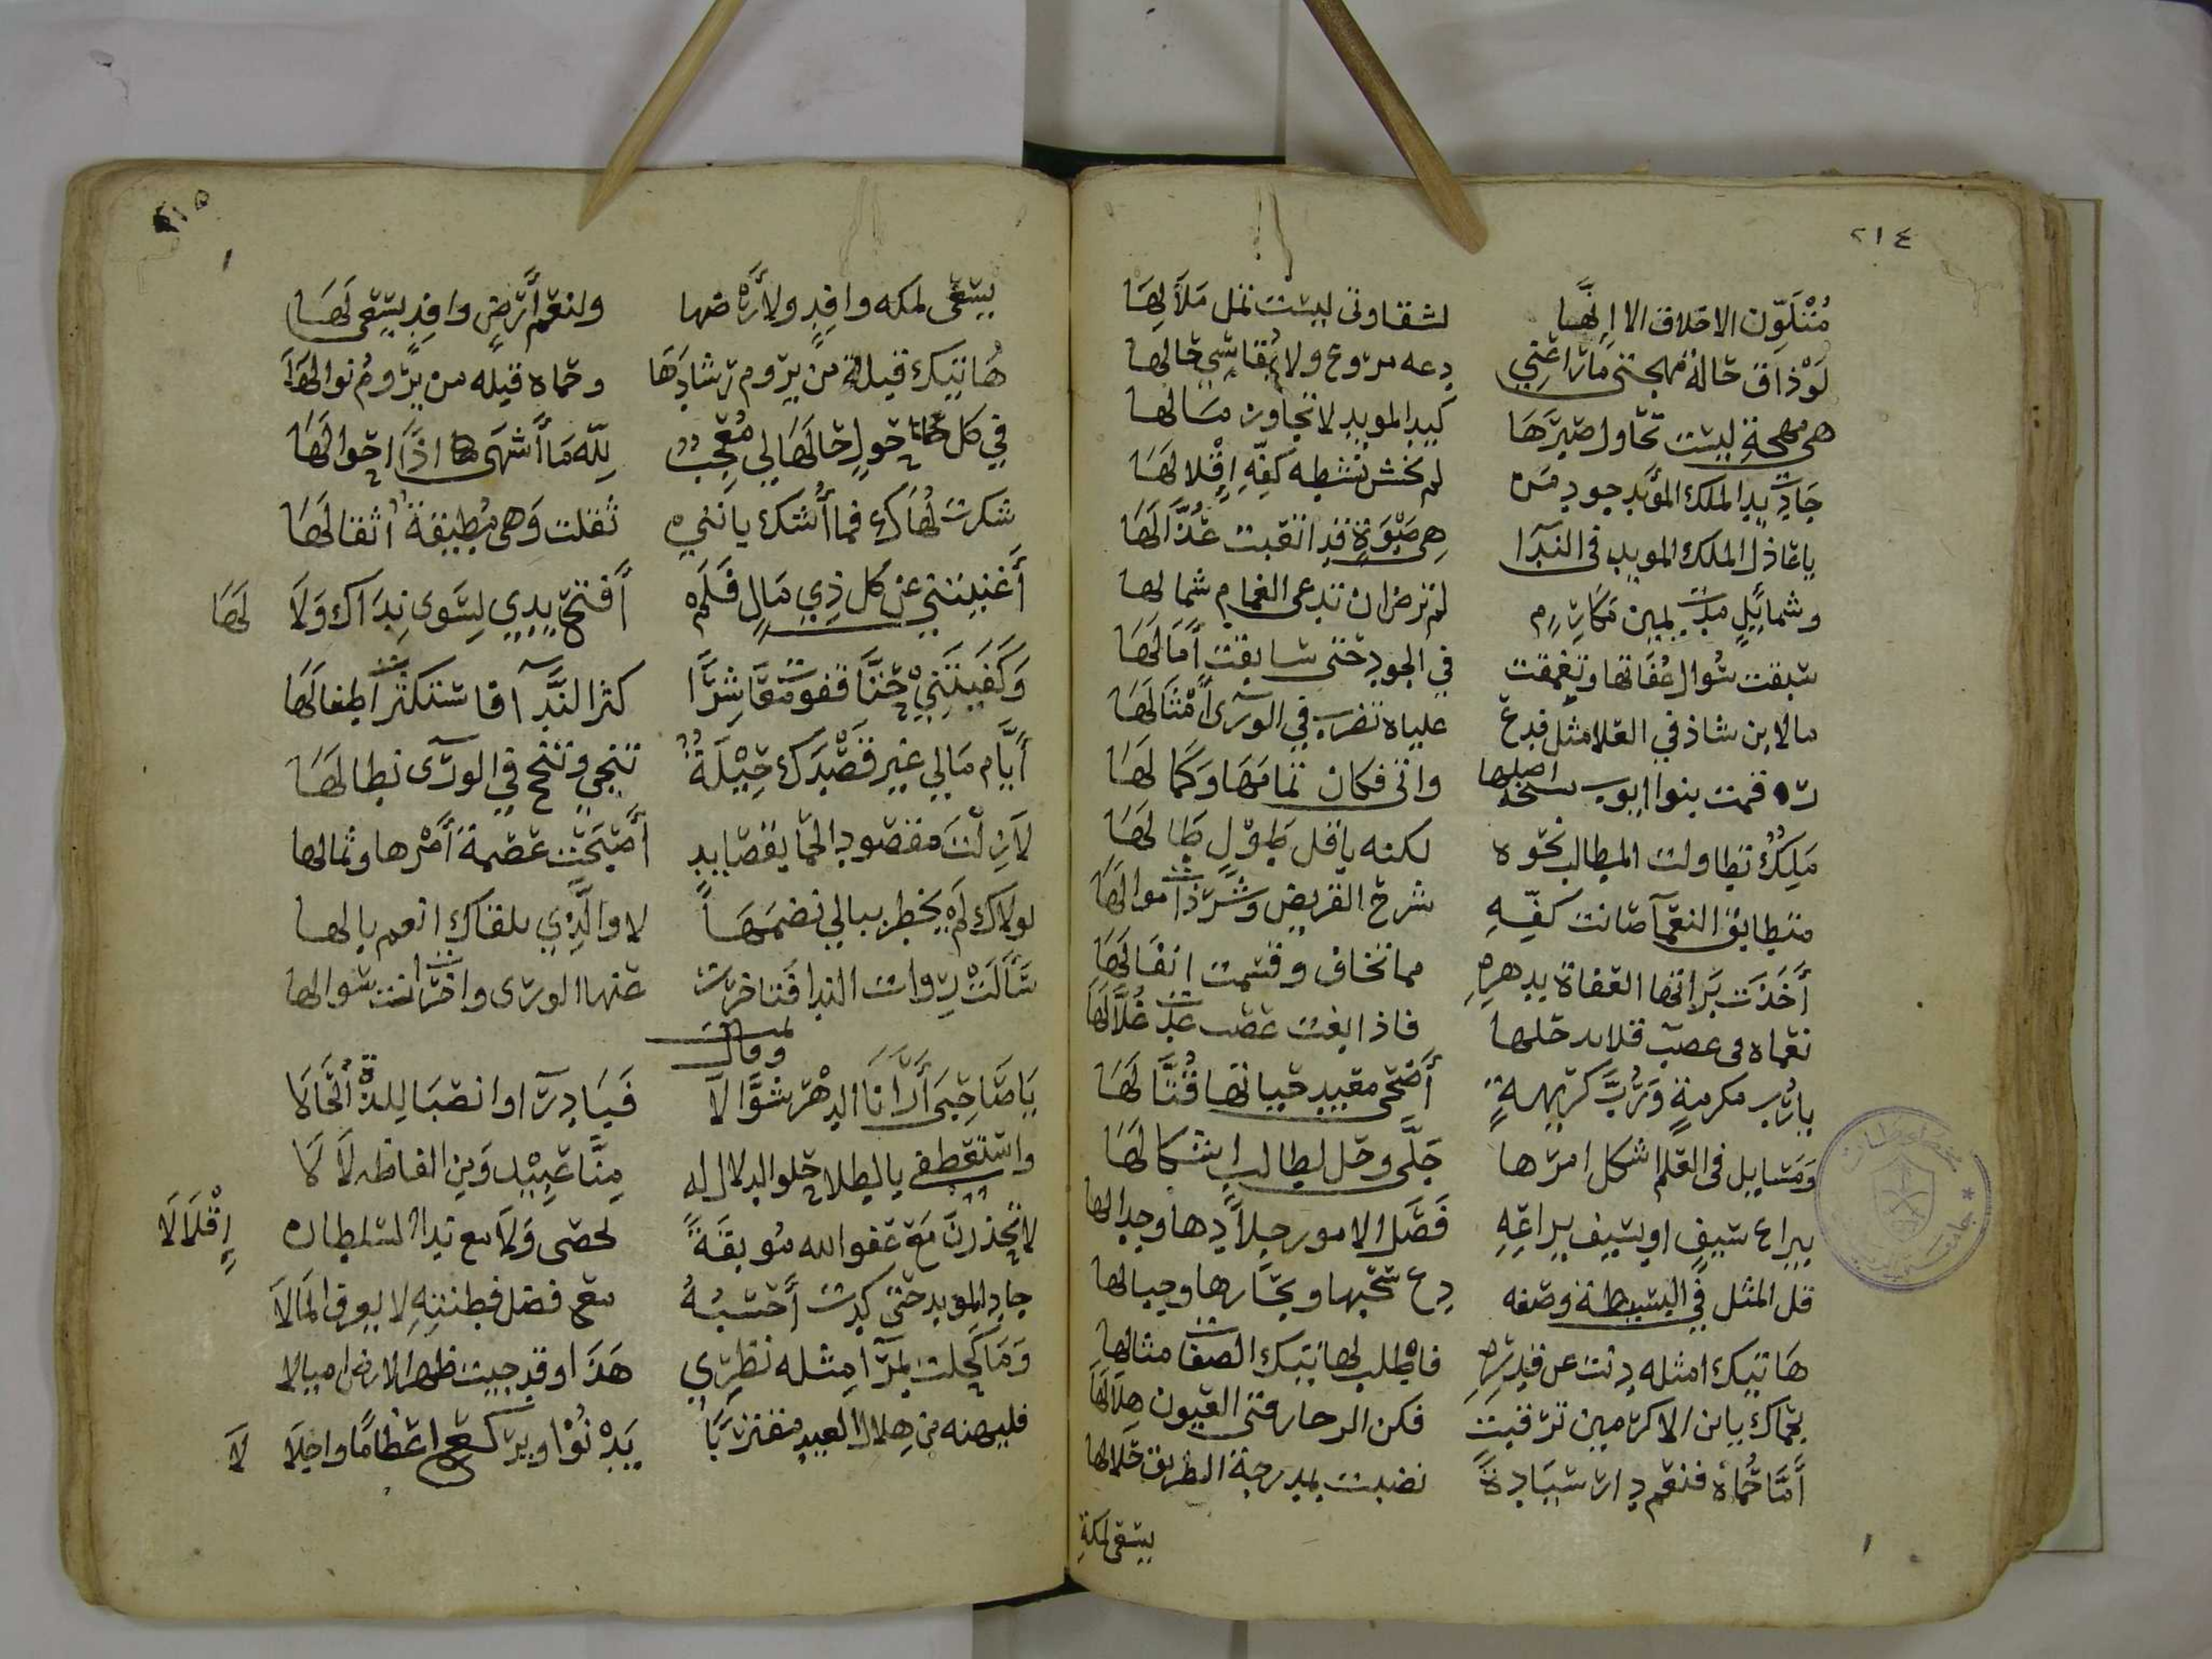 ٢١٤
مُتَلَوِّن الاخلاق الا إنَّها لشقاوتى ليست تمل مَلَالهَا
لَوْ ذاق حالة مهجتى ما راعنِي بدعه مروع ولا يُقاسِي حالها
هى مهجةٍ ليست تحاول صيرَّهَا كيد المويد لا تجاوز مسَالها
جَادت يد الملك المؤيد جود من لم يخش بَبَسْطِه كفّهِ إقْلالهَا
يا عَاذل الملك المويد فى الندَا هِى صَبْوَةٍ قد اتعبت عُذَّالَهَا
وشمائِلٍ مدت يمين مَكَارِم لم ترض ان تدعى الغمام شمالها
سبقت سُوال عُفَاتها وتعمقت في الجود حتى سابقت أمَالَهَا
ما لابن شاذ في العلا مثل فدع علياه تضرب في الورى أمْثَالَهَا
قدمت بنوا ايوب نسخة اصلها واتى فكان تمامَهَا وَكمَالهَا
مَلِكٌ تطاولت المطالب نحوه لكنه باقل طَوْلٍ طَالهَا
متطابق النعمآ صَانت كفِّهِ شرح القريض وشرذ أموالَهَا
أخَذت بَرَاتها العفاة بدهرهِ مما تخاف وقسمت انفَالَهَا
نعماه فى عصب قلايد حلها فاذا بغت عصب غدت غُلَّالَهَا
يارُب مكرمةٍ وَرُبَّ كريهةٍ أضْحى مقيد حبياتها قُتَّالَهَا
وَمَسَايل فى العلم اشكل امرها جَلَّى وحل لطالب اشكالَهَا
بيراع سيفٍ او بسيف يراعَتِهِ فَصَّل الامور جِلَادها وجدالها
قل المثل في البسيطة وصفه دع سحبها وبحَارها وجبالها
هَاتيك امثله دنت عن قدرهِ فاطلب لهاتيك الصفات مثالها
بحماك يا ابن الاكرمين ترقيت فكن الرحا رقى العيون هلَالهَا
أمَّا حُماهٌ فنعم دار سيَادةً نصبت بمدرجة الطريق حَلَالها
يسقى لمكة
٢١٥
يسقى لمكه وافِدٍ ولأرضها ولنعم أرضٍ وافِدٍ يسقى لَهَا
هَاتيك قبلة من يروم رشادَهَا وحماه قبله من يرُوم نوالهَا
في كل حَولٍ حالهَا لي مُعْجِبٌ لِلّه مَا أشهَى اذَا احوالهَا
شكرت لُهَاك فما أشك يانني ثقلت وَهى مُطِيقَةٌ اثقالهَا
أغنيتني عن كل ذِي مَالٍ فَلَم أفتح يدِي لِسَوى نِدَاك وَلَا لَهَا
وَكفَيتَنِي حتَّا فقومت مَعَاشِرًا كثر النَدآ فاستكثرت اطفالَهَا
أيّام مَالي غير قصْدك حِيْلَةٌ تنجي وتنجح في الورى بطالهَا
لَازِلْتَ مقصود الحما يقصايدٍ أصْبَحت عصْمةَ أمْرها وثمالها
لولاك لَم يخطر ببالي نضمَهَا لا والَّذِي بلقاك انعم بالها
سَألَتْ رِوات الندا فَتاخرت عنها الورى واخترت انت سوالها
وقال
يَا صَاحِبَى أرَانَا الدهْر شَوَّالَا فَبَادِرَا وانصَبَا لِلذةِ الحَالَا
واستعطفى بالطلا حُلو الدلال له مِنَّا عَبِيْد وَمن الفاظه لَالَا
لا تحذرنَّ مَع عفو الله مُوبقَةً لحصى وَلَا مع ندا السلطان إقْلَالَا
جاد المويد حتى كدت أحسَبهُ مع فضل فطنتهِ لا يعرف المَالَا
وَمَا كحلت بمرآ مِثله نظرِي هَذَا وقد جبت ظهر الارض اميالا
فليهنه من هِلال العيد مقتربًا يَدْنُوْا ويركع اعظَامًا واجلَا لَا